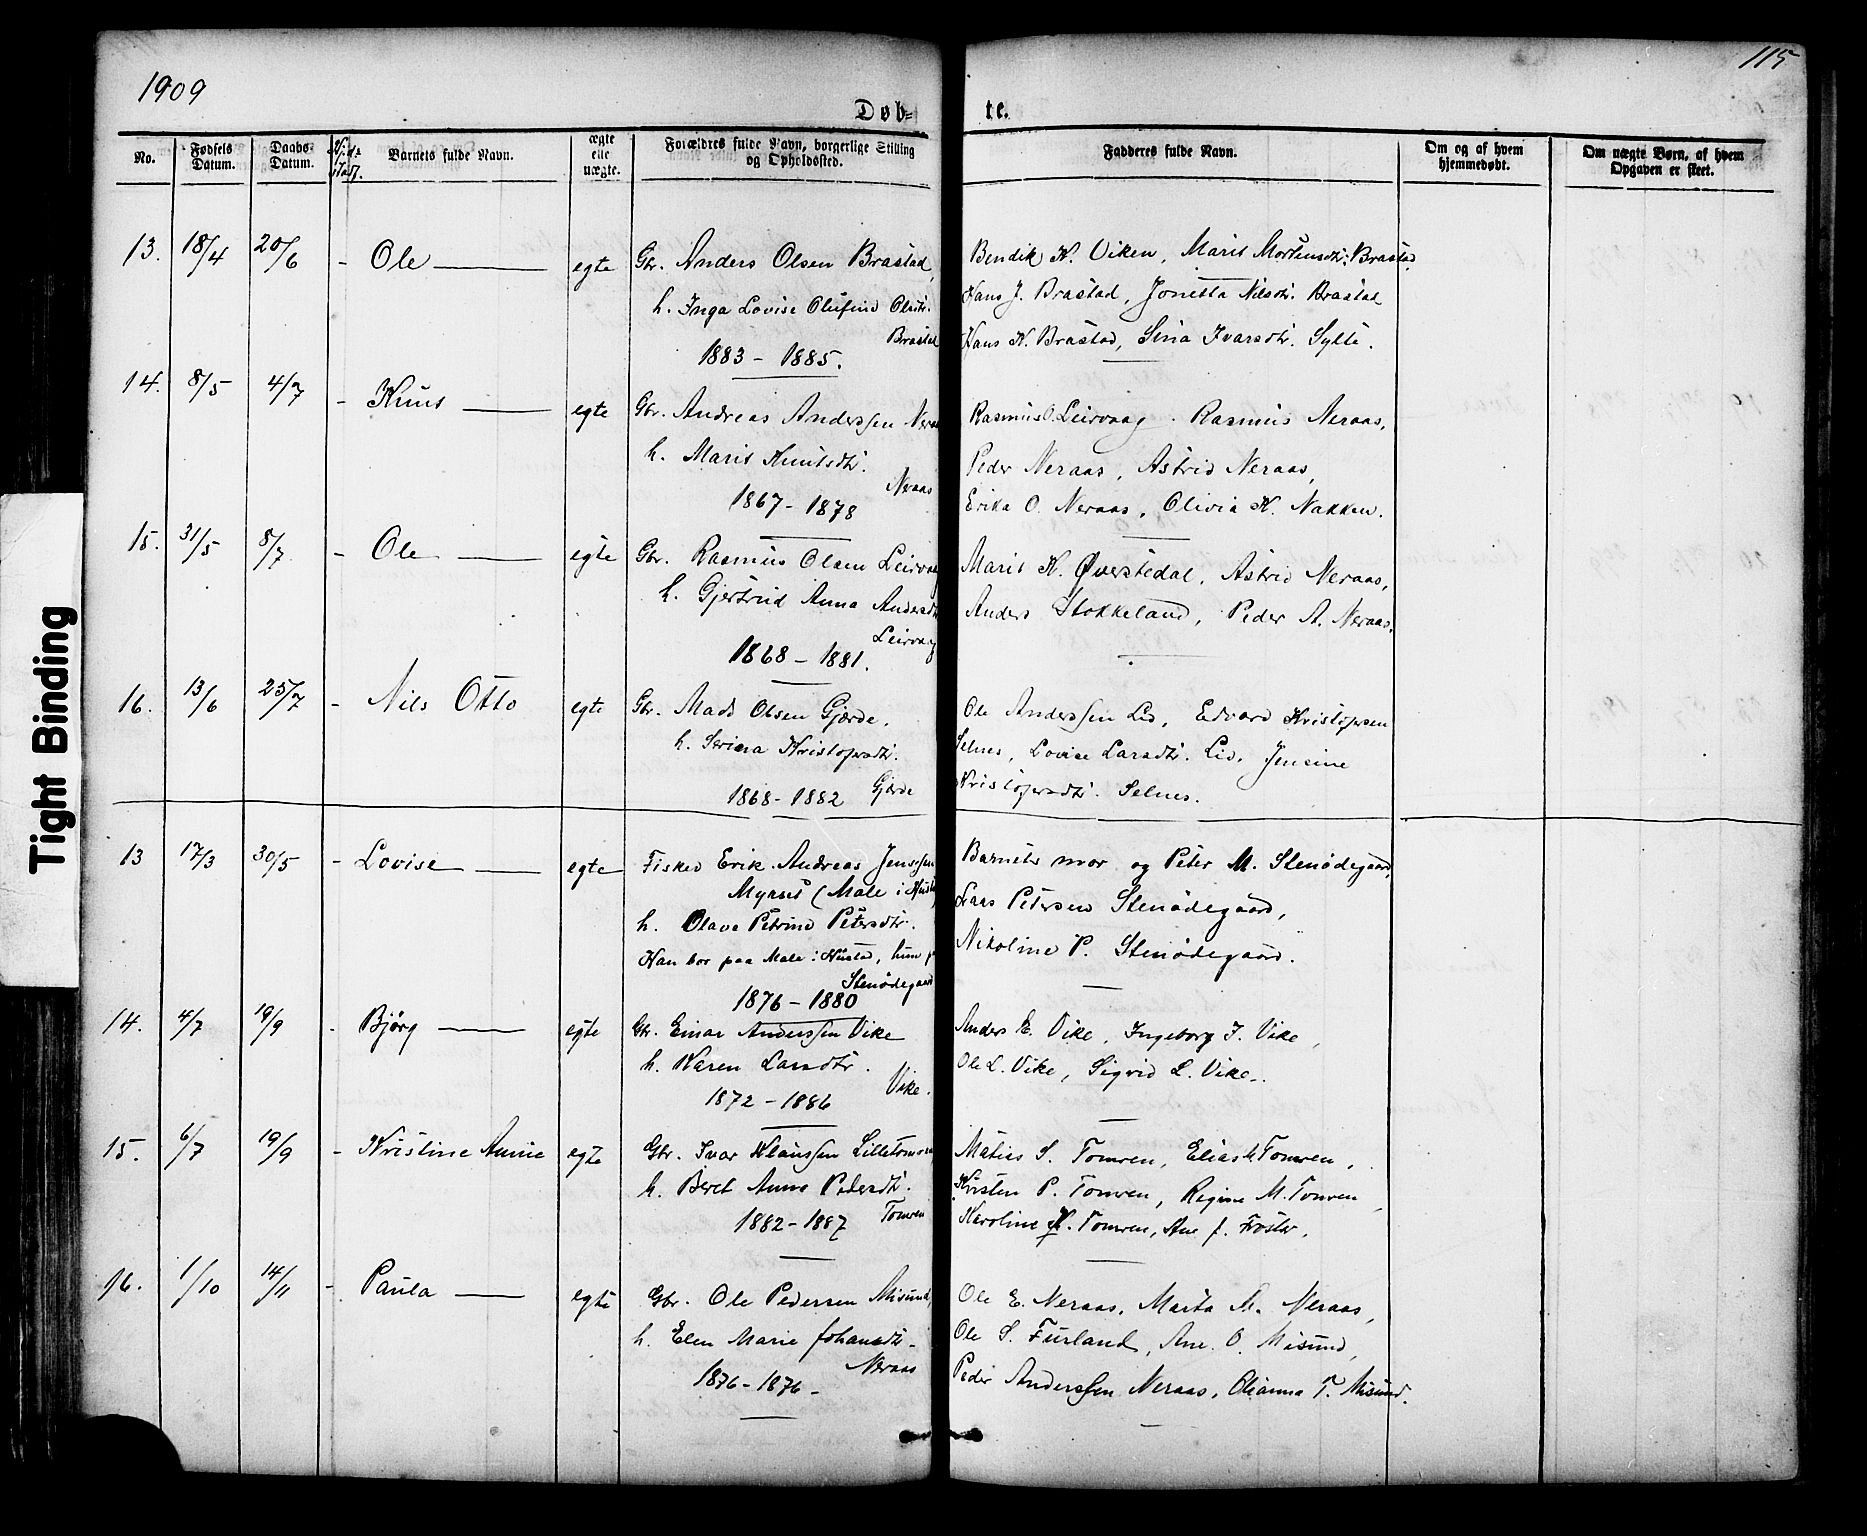 1909
115
Døb-
te.
No.
Fødsels Datum.
Daabs-Datum.
Barnets fulde Navn.
ægte elle uægte.
Forældres fulde Navn, borgerlige Stilling og Opholdssted.
Fadderes fulde Navn.
Om og af hvem hjemmedøbt.
Om uægte Børn, af hvem Opgaven er skeet.
13. 18/4 20/6 - Ole — egte Gbr. Anders Olsen Brastad,
h. Inga Lovise Olufine Olsdtr.
Brastad
1883 - 1885.
Bendik K. Viken, Marit Mortensdtr. Brastad
Hans J. Brastad, Jonetta Nilsdtr. Brastad
Hans K. Brastad, Sina Ivarsdtr. Sylte.
14. 8/5 4/7 - Knut — egte Gbr. Andreas Anderssen Neraas
h. Marit Knutsdtr.
Neraas
1867 - 1878
Rasmus O. Leirvaag. Rasmus Neraas,
Peder Neraas, Astrid Neraas,
Erika O. Neraas, Olivia K. Nakken.
15. 31/5 8/7 - Ole — egte Gbr. Rasmus Olsen Leirvaag
h. Gjertrud Anna Andersdtr
Leirvaag
1868 - 1881.
Marit K. Øverstedal, Astrid Neraas,
Anders Stokkeland, Peder A. Neraas.
16. 13/6 25/7 - Nils Otto egte Gbr. Mads Olsen Gjærde.
h. Serina Kristofersdtr.
1868 - 1882 Gjærde
Ole Anderssen Lid, Edvard Kristofersen
Selnes, Lovise Larsdtr. Lid, Jensine
Kristofersdtr. Selnes.
13 17/3 30/5 - Lovise — egte Fisker Erik Andreas Jenssen
Myrset (Male i Hustad)
h. Olava Petrine Petersdtr.
Han bor paa Male i Hustad, hun p
Stenødegaard
1876 - 1880
Barnets mor og Peter M. Stenødegaard,
Laas Petersen Stenødegaard,
Nikoline P. Stenødegaard.
14. 4/7 19/9 - Bjørg — egte Gbr. Einar Anderssen Vike
h. Karen Larsdtr.
Vike.
1872 - 1886
Anders E. Vike, Ingeborg J. Vike,
Ole L. Vike, Sigrid L. Vike.
15. 6/7 19/9 - Kristine Annie egte Gbr. Ivar Klaussen Lilletomren
h. Beret Anna Pedersdtr.
1882 - 1887 Tomren
Matias S. Tomren, Elias K. Tomren,
Kirsten P. Tomren, Regine M. Tomren,
Karoline K. Tomren, Ane J. Froster.
16. 1/10 14/11 - Paula — egte Gbr. Ole Pedersen Misund,
h. Elen Marie Johansdtr.
Neraas
1876 - 1876 -
Ole E. Neraas, Marta M. Neraas,
Ole S. Furland, Ane O. Misund,
Peder Anderssen Neraas, Olianna T. Misund.
Tight Binding